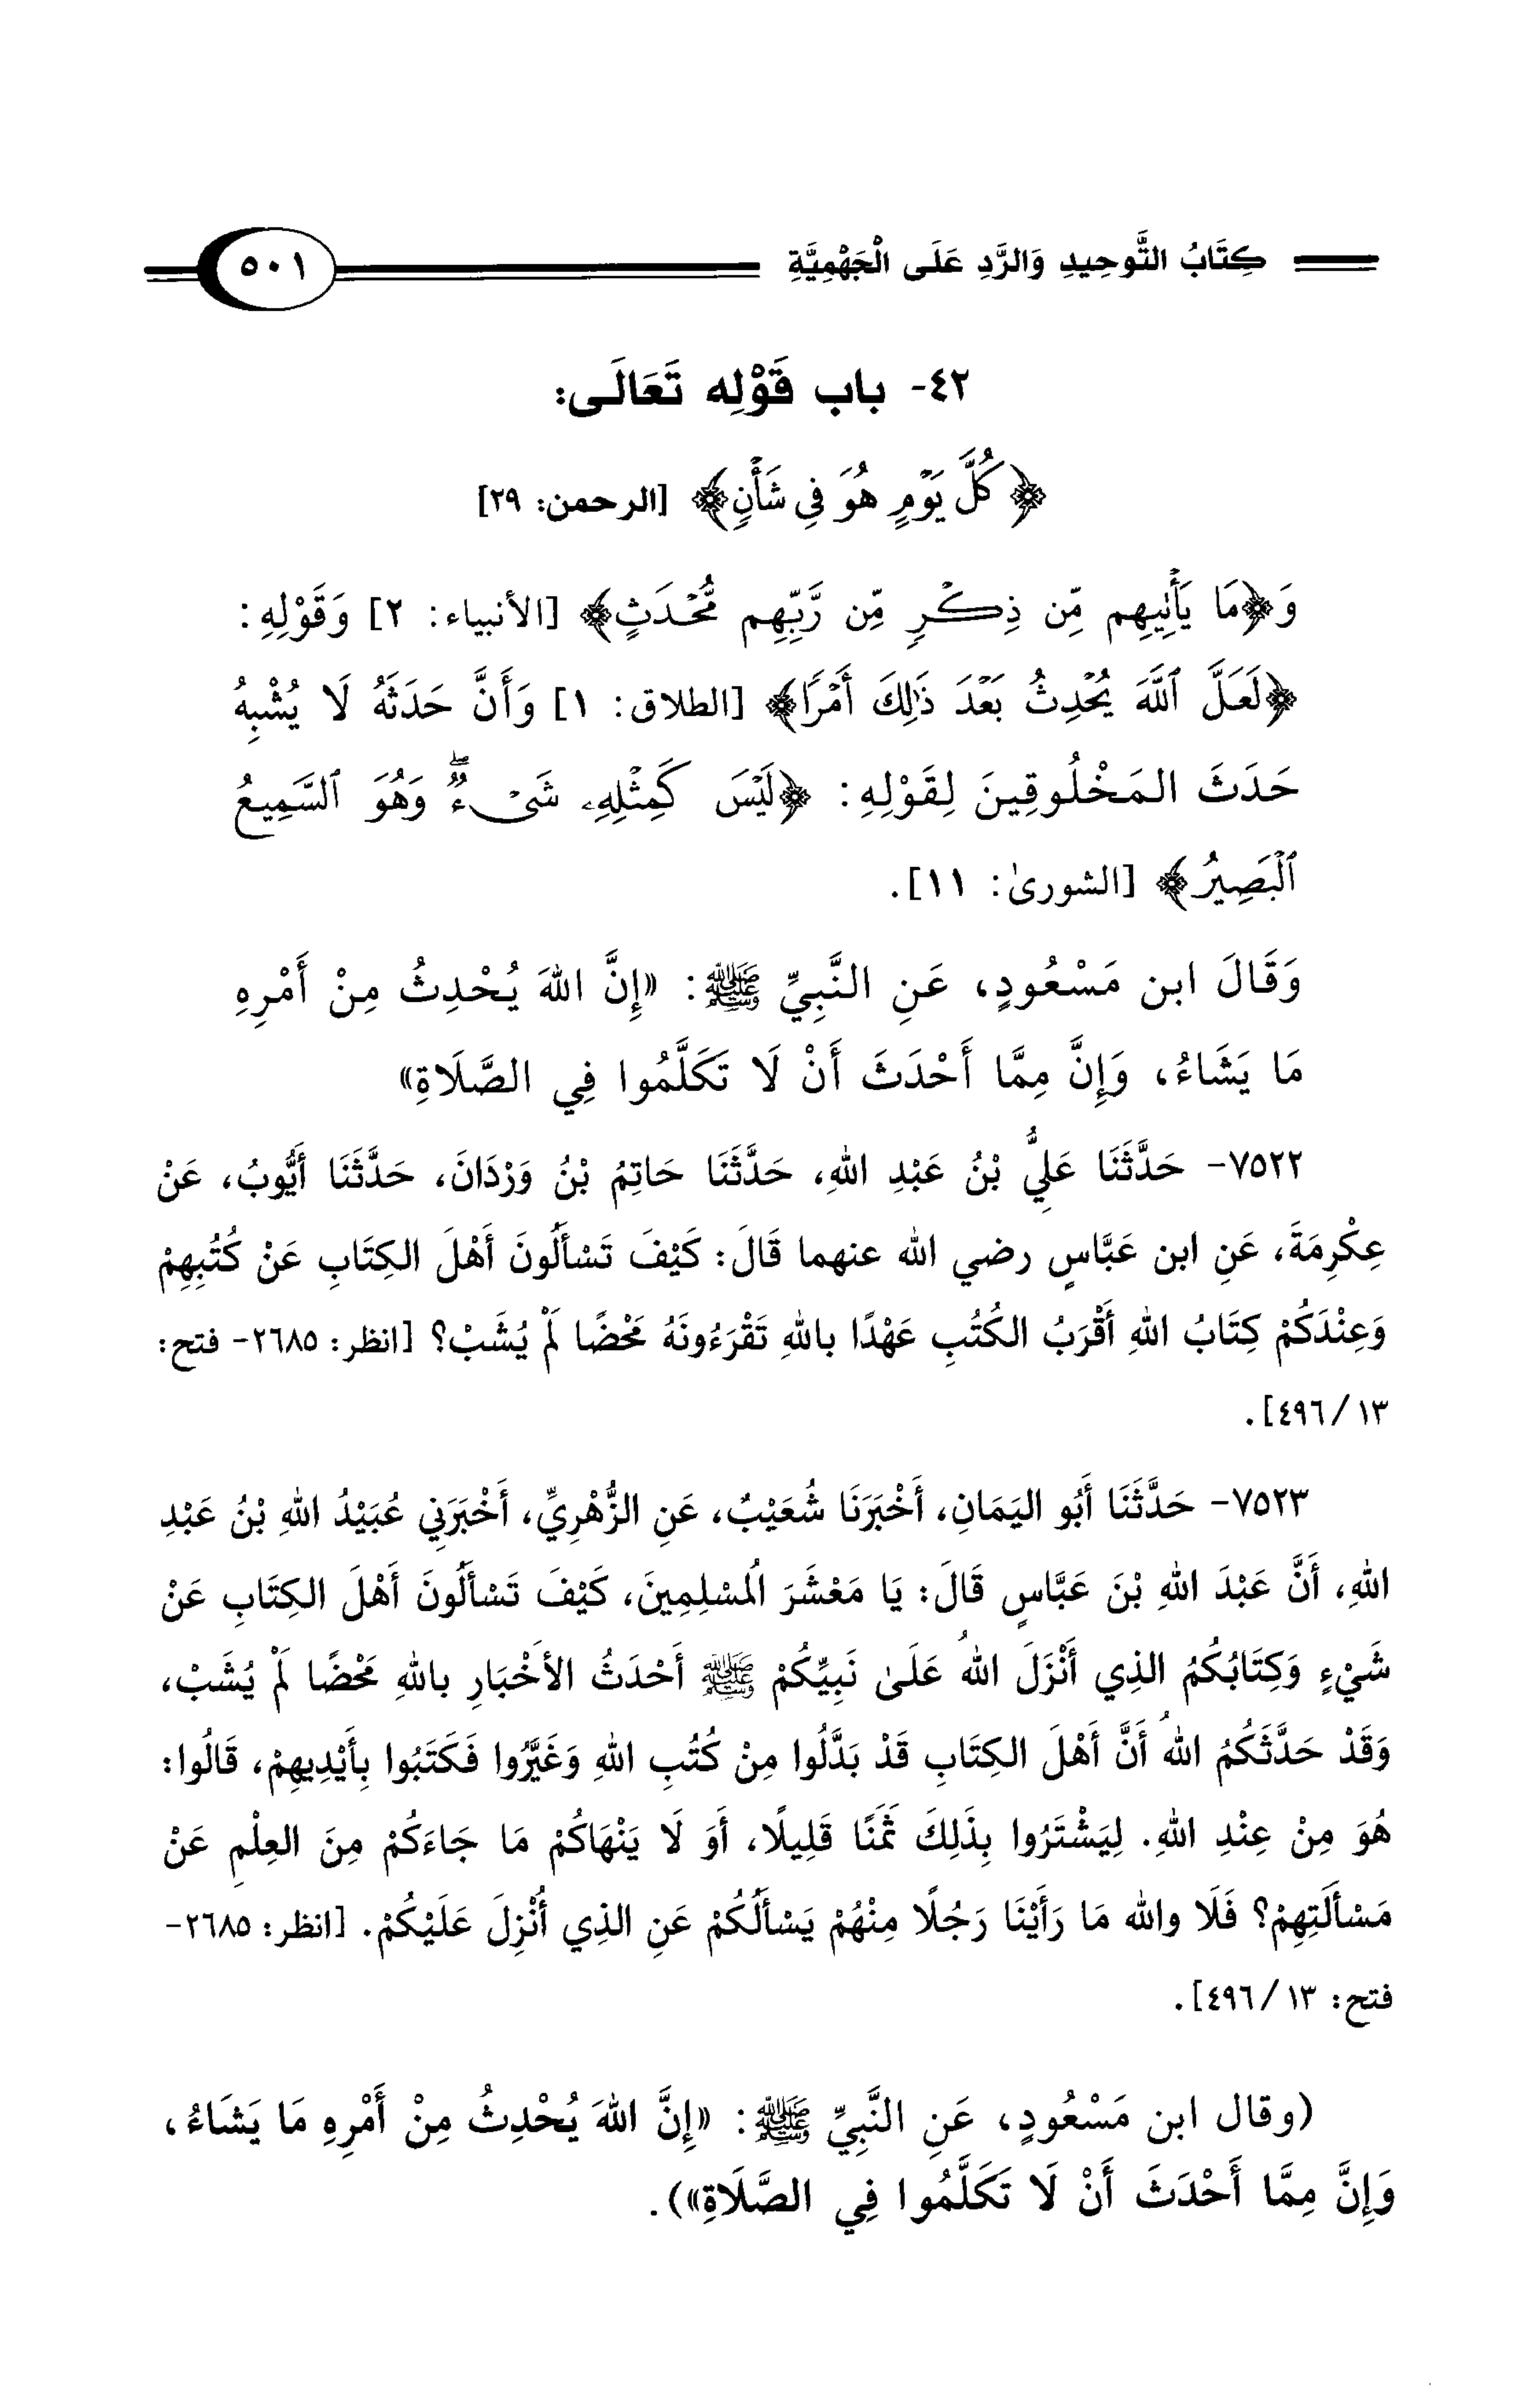 كِتَابُ التَّوحِيدِ وَالرَّدِ عَلَى الْجَهْمِيَّةِ ٥٠١
٤٢- باب قَوْلِه تَعَالَى:
﴿كُلَّ يَوْمٍ هُوَ فِي شَأْنٍ﴾ [الرحمن: ٢٩]
وَ﴿مَا يَأْتِيهِم مِّن ذِكْرٍ مِّن رَّبِّهِم مُّحْدَثٍ﴾ [الأنبياء: ٢] وَقَوْلِهِ:
﴿لَعَلَّ ٱللَّهَ يُحْدِثُ بَعْدَ ذَٰلِكَ أَمْرًا﴾ [الطلاق: ١] وَأَنَّ حَدَثَهُ لَا يُشْبِهُ
حَدَثَ المَخْلُوقِينَ لِقَوْلِهِ: ﴿لَيْسَ كَمِثْلِهِۦ شَىْءٌ ۖ وَهُوَ ٱلسَّمِيعُ
ٱلْبَصِيرُ﴾ [الشورىٰ: ١١].
وَقَالَ ابن مَسْعُودٍ، عَنِ النَّبِيِّ ﷺ: «إِنَّ اللهَ يُحْدِثُ مِنْ أَمْرِهِ
مَا يَشَاءُ، وَإِنَّ مِمَّا أَحْدَثَ أَنْ لَا تَكَلَّمُوا فِي الصَّلَاةِ»
٧٥٢٢- حَدَّثَنَا عَلِيُّ بْنُ عَبْدِ اللهِ، حَدَّثَنَا حَاتِمُ بْنُ وَرْدَانَ، حَدَّثَنَا أَيُّوبُ، عَنْ
عِكْرِمَةَ، عَنِ ابن عَبَّاسٍ رضي الله عنهما قَالَ: كَيْفَ تَسْأَلُونَ أَهْلَ الكِتَابِ عَنْ كُتُبِهِمْ
وَعِنْدَكُمْ كِتَابُ اللهِ أَقْرَبُ الكُتُبِ عَهْدًا باللهِ تَقْرَءُونَهُ مَحْضًا لَمْ يُشَبْ؟ [انظر: ٢٦٨٥- فتح:
١٣/ ٤٩٦].
٧٥٢٣- حَدَّثَنَا أَبُو اليَمَانِ، أَخْبَرَنَا شُعَيْبٌ، عَنِ الزُّهْرِيِّ، أَخْبَرَنِي عُبَيْدُ اللهِ بْنُ عَبْدِ
اللهِ، أَنَّ عَبْدَ اللهِ بْنَ عَبَّاسٍ قَالَ: يَا مَعْشَرَ الُمسْلِمِينَ، كَيْفَ تَسْأَلُونَ أَهْلَ الكِتَابِ عَنْ
شَيْءٍ وَكِتَابُكُمُ الذِي أَنْزَلَ اللهُ عَلَىٰ نَبِيِّكُمْ ﷺ أَحْدَثُ الأَخْبَارِ باللهِ مَحْضًا لَمْ يُشَبْ،
وَقَدْ حَدَّثَكُمُ اللهُ أَنَّ أَهْلَ الكِتَابِ قَدْ بَدَّلُوا مِنْ كُتُبِ اللهِ وَغَيَّرُوا فَكَتَبُوا بِأَيْدِيهِمْ، قَالُوا:
هُوَ مِنْ عِنْدِ اللهِ. لِيَشْتَرُوا بِذَلِكَ ثَمَنًا قَلِيلًا، أَوَ لَا يَنْهَاكُمْ مَا جَاءَكُمْ مِنَ العِلْمِ عَنْ
مَسْأَلَتِهِمْ؟ فَلَا والله مَا رَأَيْنَا رَجُلًا مِنْهُمْ يَسْأَلُكُمْ عَنِ الذِي أُنْزِلَ عَلَيْكُمْ. [انظر: ٢٦٨٥-
فتح: ١٣/ ٤٩٦].
(وقال ابن مَسْعُودٍ، عَنِ النَّبِيِّ ﷺ: «إِنَّ اللهَ يُحْدِثُ مِنْ أَمْرِهِ مَا يَشَاءُ،
وَإِنَّ مِمَّا أَحْدَثَ أَنْ لَا تَكَلَّمُوا فِي الصَّلَاةِ»).